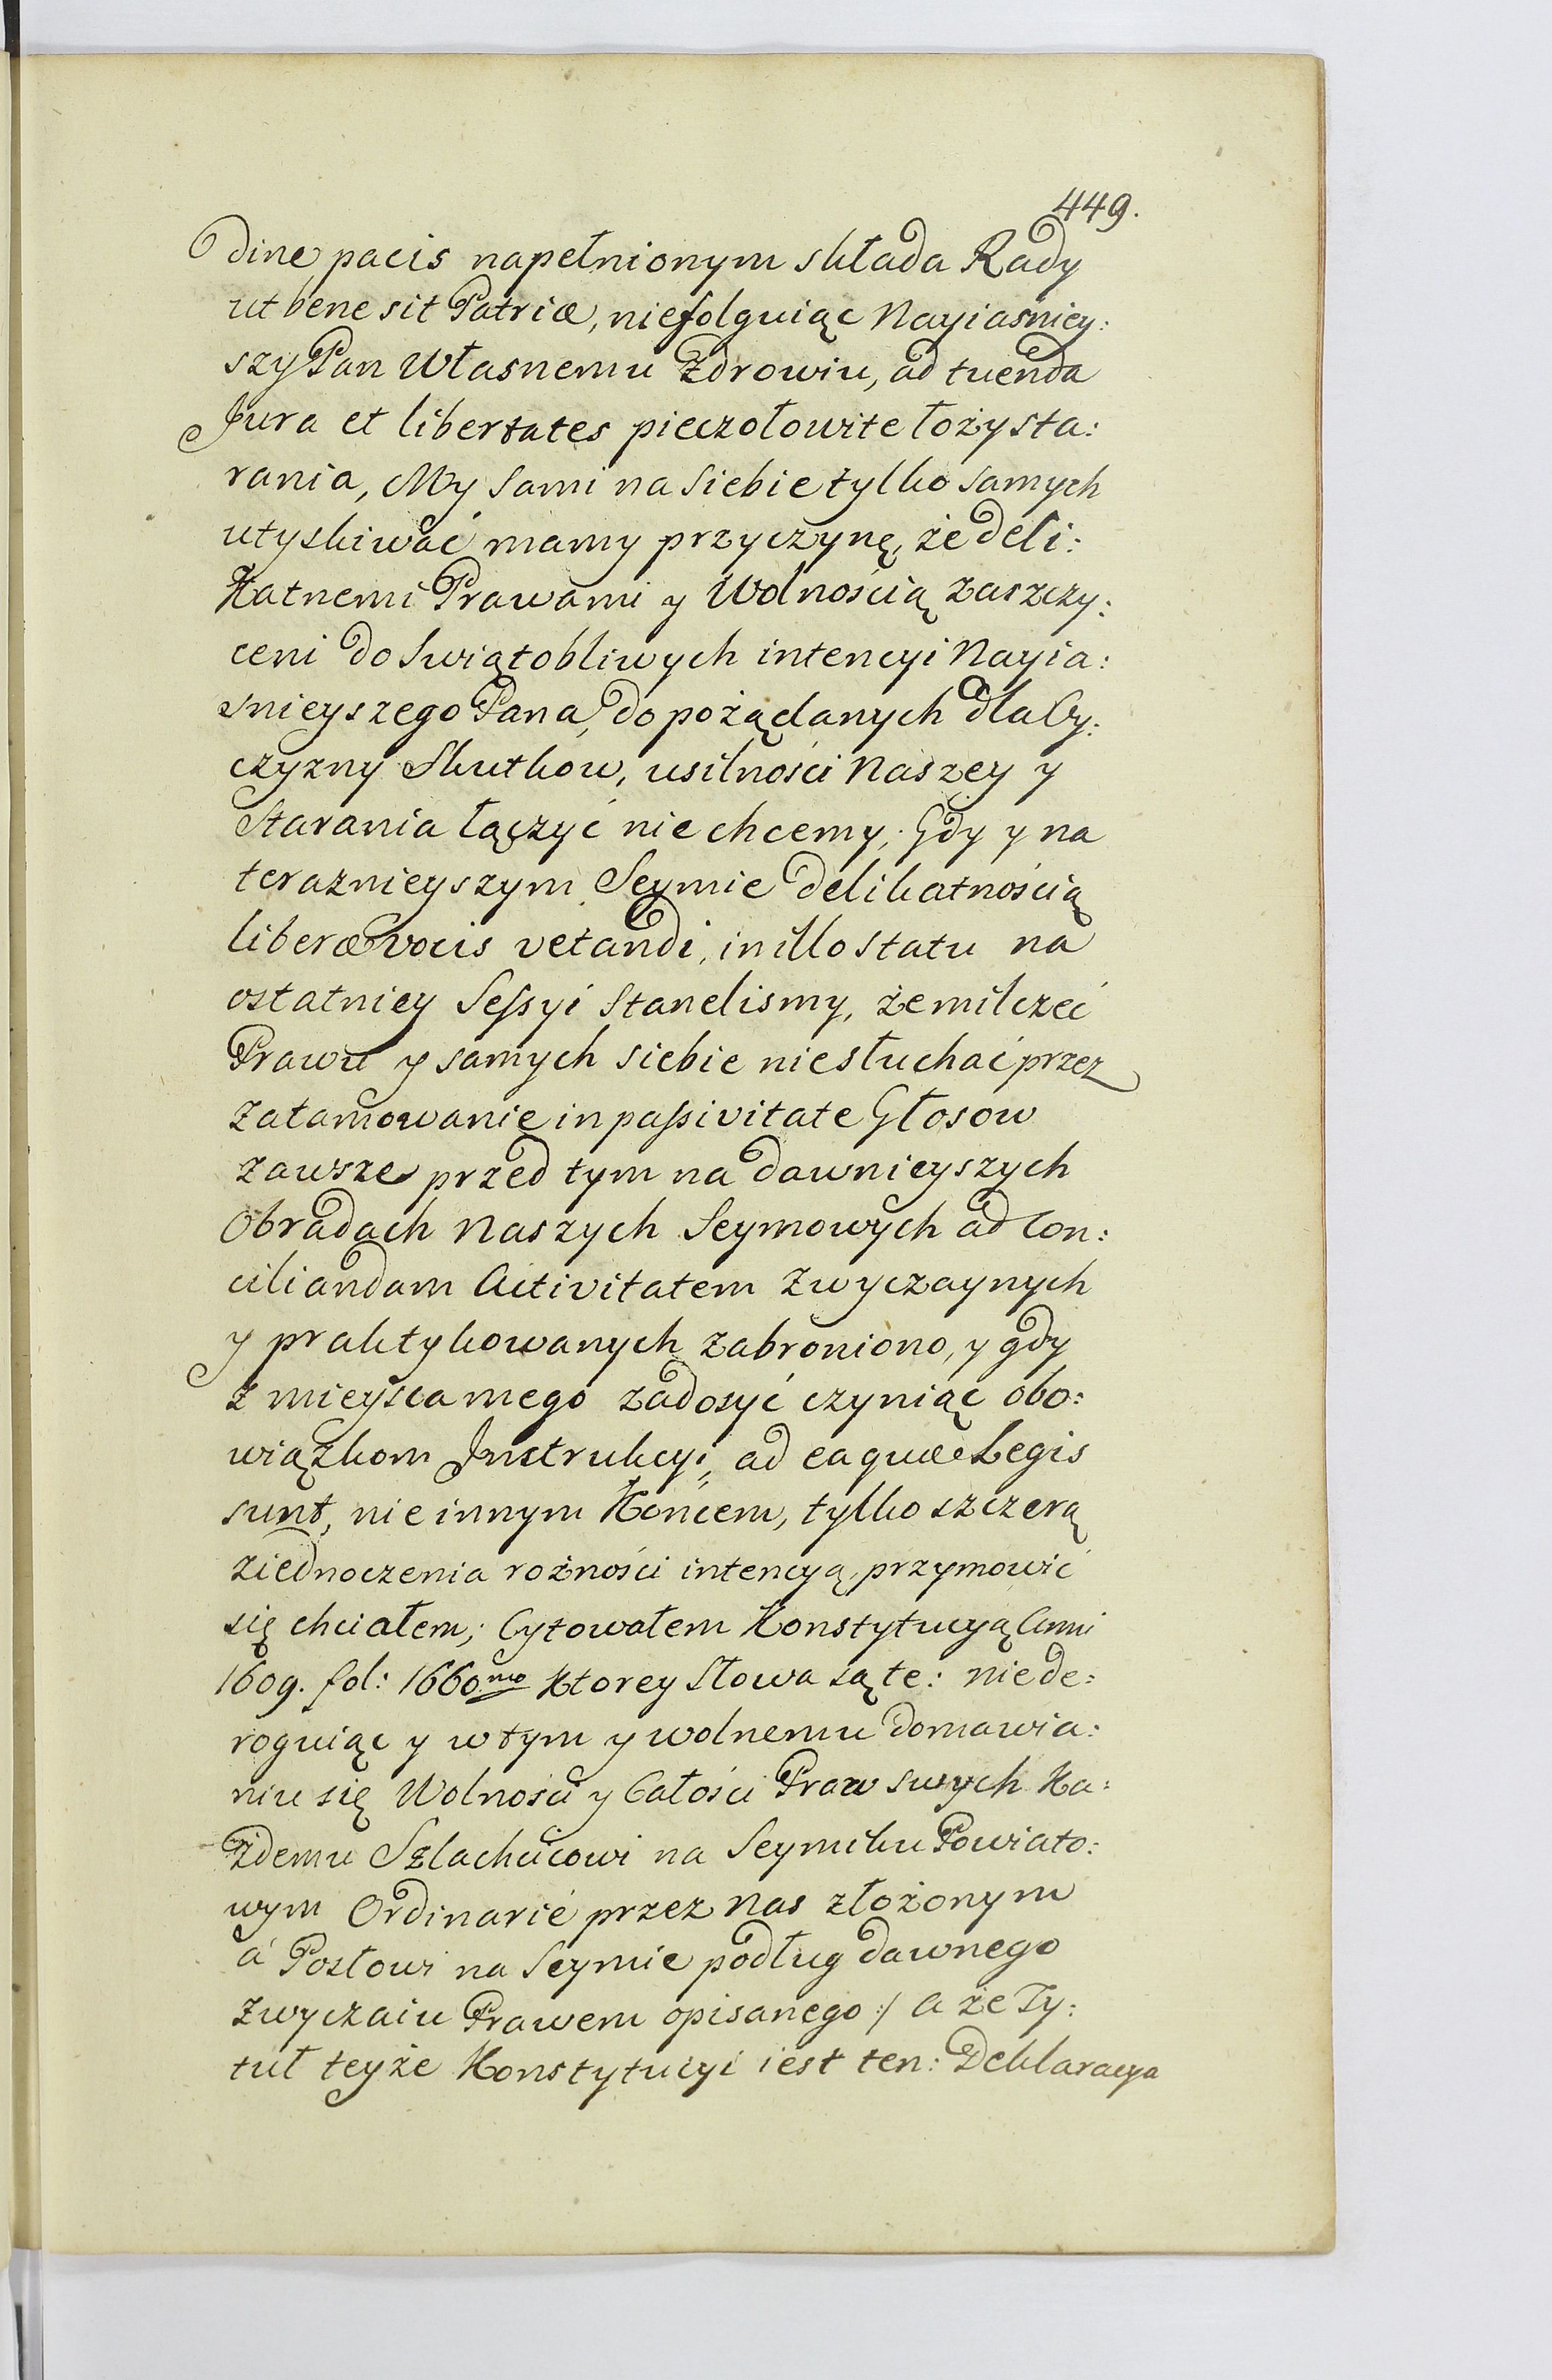 449.
dine pacis napełnionym składa Rady
ut bene sit Patriæ, niefolguiąc Nayiasniey:
szy Pan Własnemu Zdrowiu, ad tuenda
Jura et libertates pieczołowite łoży sta:
rania, My sami na siebie tylko samych
utyskiwać mamy przyczynę, że deli:
katnemi Prawami y Wolnością zaszczy:
ceni do Swiątobliwych intencyi Nayia:
snieyszego Pana, do pożądanych dla Oy:
czyzny Skutkow, usilności Naszey y
Starania łączyć nie chcemy; Gdy y na
teraznieyszym Seymie delikatnością
liberæ vocis vetandi, in illo statu na
ostatniey Sessyi stanelismy, że milczeć
Prawu y samych siebie niesłuchać przez
zatamowanie in passivitate Głosow
zawsze przed tym na dawnieyszych
Obradach Naszych Seymowych ad con:
ciliandam Activitatem zwyczaynych
y praktykowanych zabroniono, y gdy
z mieysca mego zadosyć czyniąc obo:
wiązkom Instrukcyi, ad ea quæ Legis
sunt, nie innym Końcem, tylko szczerą
ziednoczenia rożności intencyą, przymowić
się chciałem; Cytowałem Konstytucyą Anni
1609. fol: 1660mo Ktorey Słowa są te: nie de:
roguiąc y w tym y wolnemu domawia:
niu się Wolności y Całości Praw swych Ka:
żdemu Szlachcicowi na Seymiku Powiato:
wym Ordinarié przez Nas złożonym
á Posłowi na Seymie podług dawnego
zwyczaiu Prawem opisanego :/ a że Ty:
tuł teyże Konstytucyi iest ten: Deklaracya